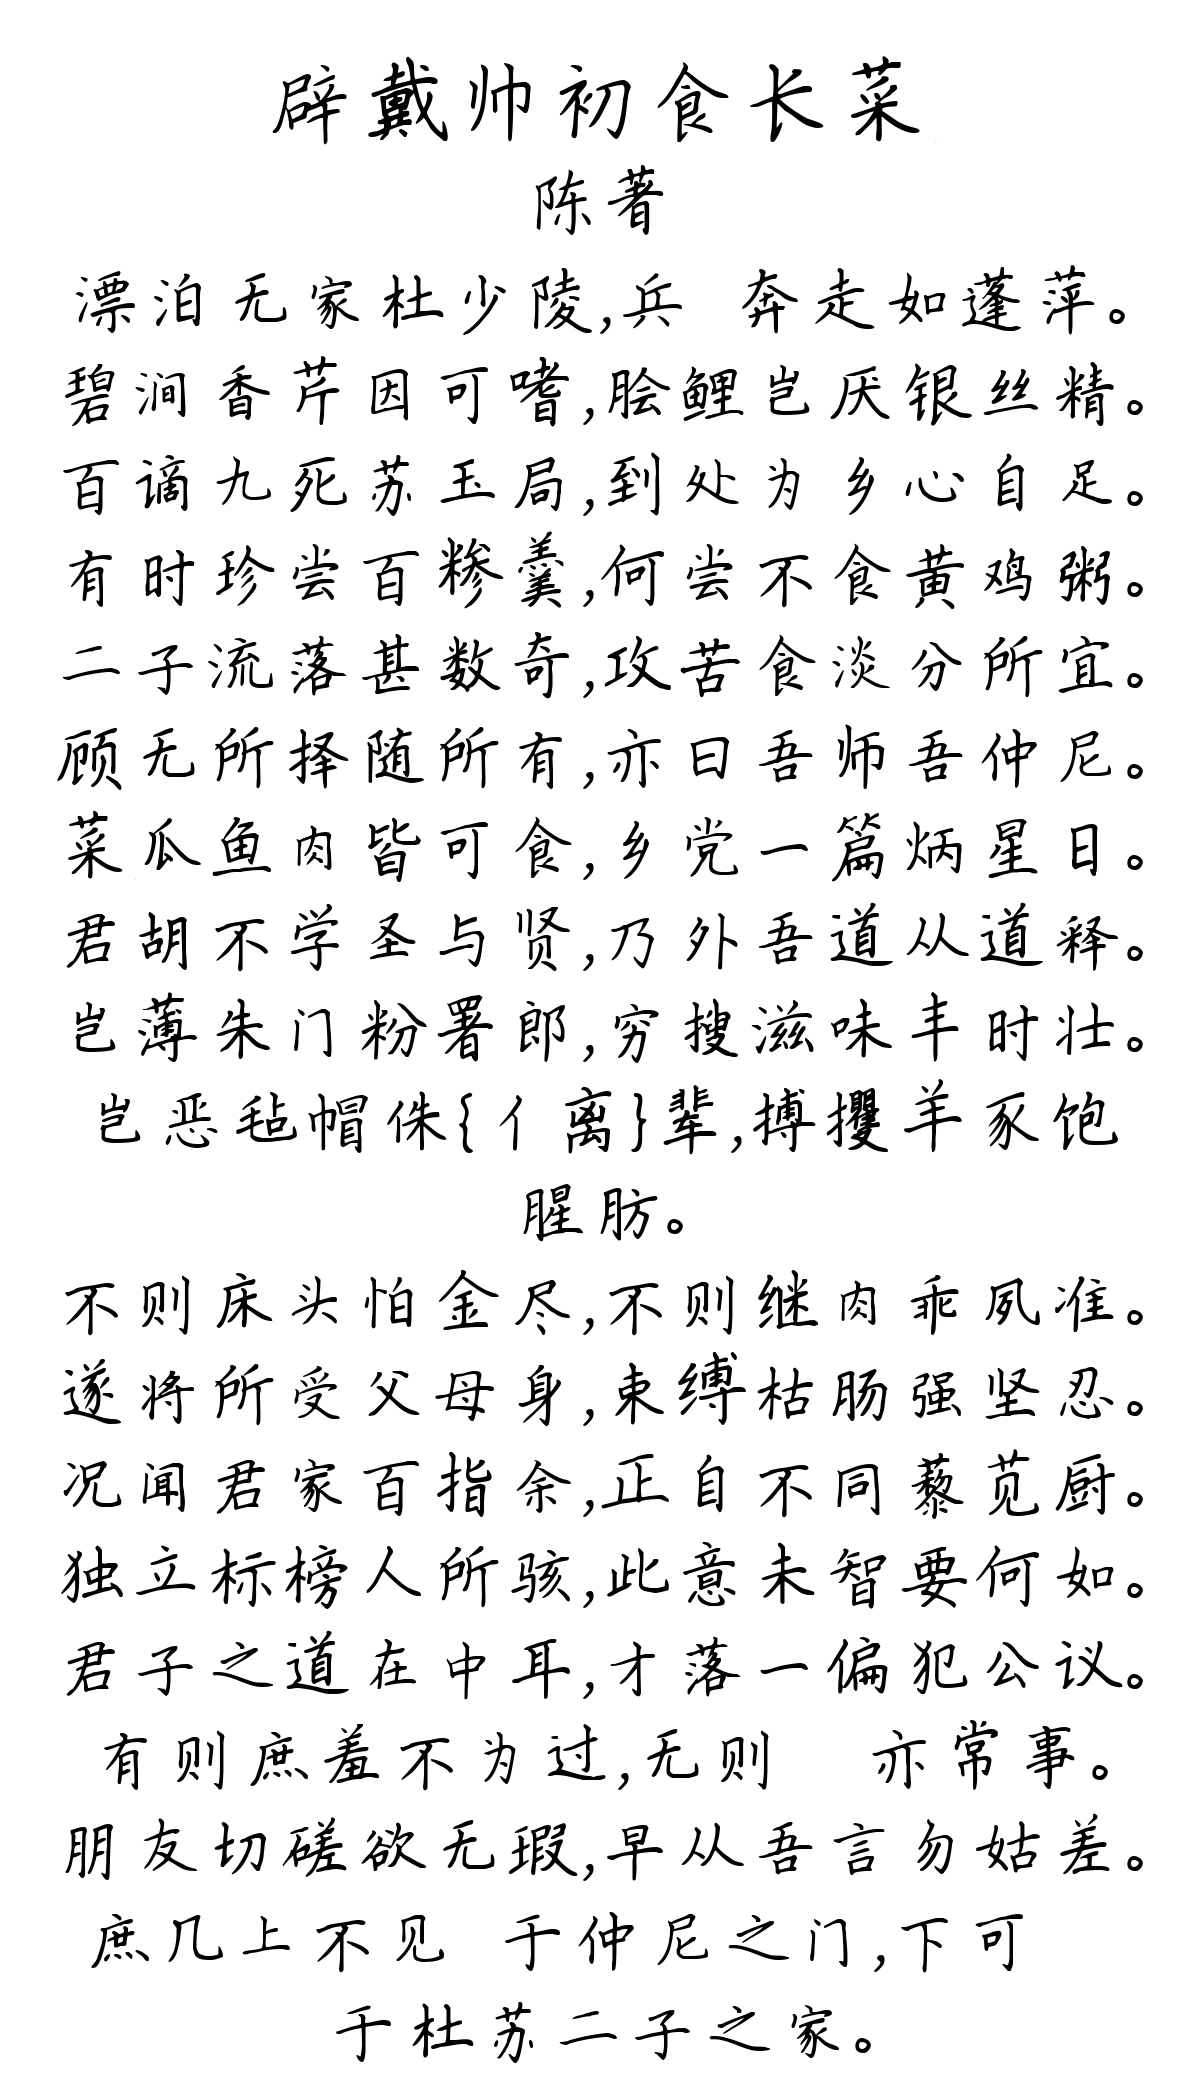 辟戴帅初食长菜
陈著
漂泊无家杜少陵,兵 奔走如蓬萍。
碧涧香芹因可嗜,脍鲤岂厌银丝精。
百谪九死苏玉局,到处为乡心自足。
有时珍尝百糁羹,何尝不食黄鸡粥。
二子流落甚数奇,攻苦食淡分所宜。
顾无所择随所有,亦曰吾师吾仲尼。
菜瓜鱼肉皆可食,乡党一篇炳星日。
君胡不学圣与贤,乃外吾道从道释。
岂薄朱门粉署郎,穷搜滋味丰时壮。
岂恶毡帽侏{亻离}辈,搏攫羊豕饱
腥肪。
不则床头怕金尽,不则继肉乖夙准。
遂将所受父母身,束缚枯肠强坚忍。
况闻君家百指余,正自不同藜苋厨。
独立标榜人所骇,此意未智要何如。
君子之道在中耳,才落一偏犯公议。
有则庶羞不为过,无则 亦常事。
朋友切磋欲无瑕,早从吾言勿姑差。
庶几上不见 于仲尼之门,下可
于杜苏二子之家。